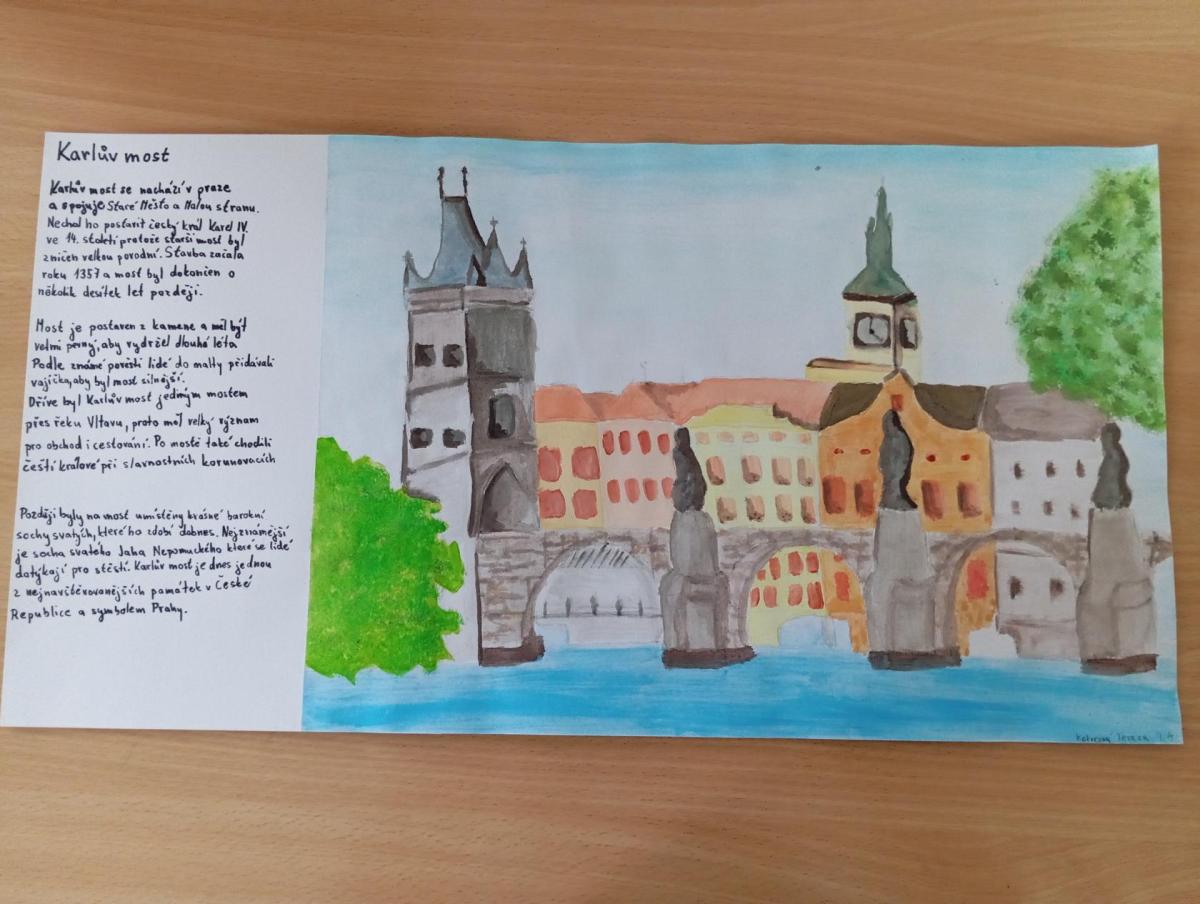 Karlův most
Karlův most se nachází v praze
a spojuje Staré Město a Malou stranu.
Nechal ho postavit český král Karel IV.
ve 14. století protože starší most byl
zničen velkou povodní. Stavba začala
roku 1357 a most byl dokončen o
několik desítek let později.
Most je postaven z kamene a měl být
velmi pevný, aby vydržel dlouhá léta
Podle známé pověsti lidé do malty přidávali
vajíčka, aby byl most silnější.
Dříve byl Karlův most jediným mostem
přes řeku Vltavu, proto měl velký význam
pro obchod i cestování. Po mostě také chodili
čeští králové při slavnostních korunovacích
Později byly na most umístěny krásné barokní
sochy svatých, které ho zdobí dodnes. Nejznámější
je socha svatého Jana Nepomuckého které se lidé
dotýkají pro štěstí. Karlův most je dnes jednou
z nejnavštěvovanějších památek v České
Republice a symbolem Prahy.
Tereza